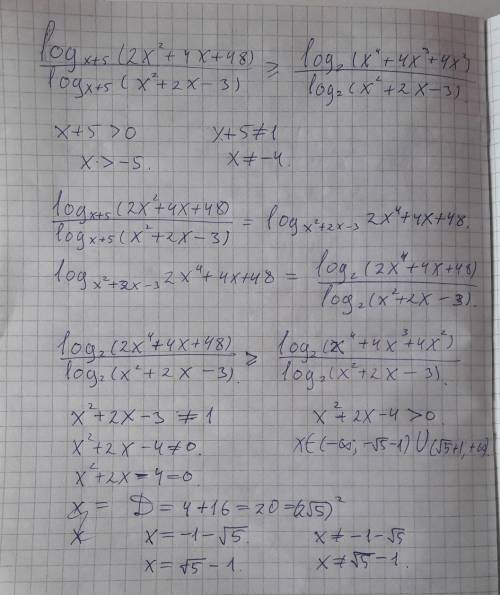 log_{x+5}(2x²+4x+48) / log_{x+5}(x²+2x-3) ⩾ log₂(x⁴+4x³+4x²) / log₂(x²+2x-3)
x+5>0 x+5≠1
x>-5. x≠-4.
log_{x+5}(2x²+4x+48) / log_{x+5}(x²+2x-3) = log_{x²+2x-3} 2x⁴+4x+48.
log_{x²+2x-3} 2x⁴+4x+48 = log₂(2x⁴+4x+48) / log₂(x²+2x-3).
log₂(2x⁴+4x+48) / log₂(x²+2x-3) ⩾ log₂(x⁴+4x³+4x²) / log₂(x²+2x-3).
x²+2x-3≠1 x²+2x-4>0
x²+2x-4≠0. x∈(-∞,-√5-1)∪(√5+1,+∞).
x²+2x-4=0.
x = D=4+16=20=(2√5)²
x x=-1-√5. x≠-1-√5
x=√5-1. x≠√5-1.